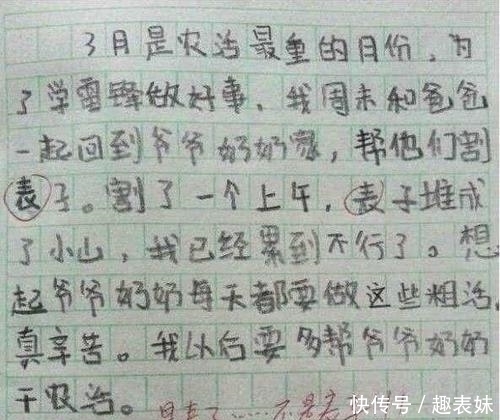 3月是农活最重的月份，为
了学雷锋做好事，我周末和爸爸
一起回到爷爷奶奶家，帮他们割
表子。割了一个上午，表子堆成
了小山，我已经累到不行了。想
起爷爷奶奶每天都要做这些粗活，
真辛苦。我以后要多帮爷爷奶奶
干农活。是麦子……不是表
快传号／趣表妹